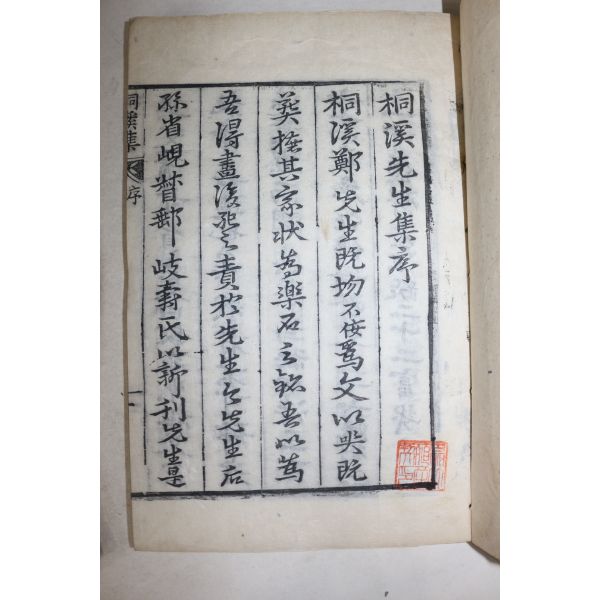 桐溪先生集序
桐溪鄭先生旣歿不佞爲文以哭旣
葬撫其家狀爲樂石之銘吾以爲
吾得盡後死之責於先生今先生后
孫省峴督郵岐壽氏以新刊先生是
桐溪集 序